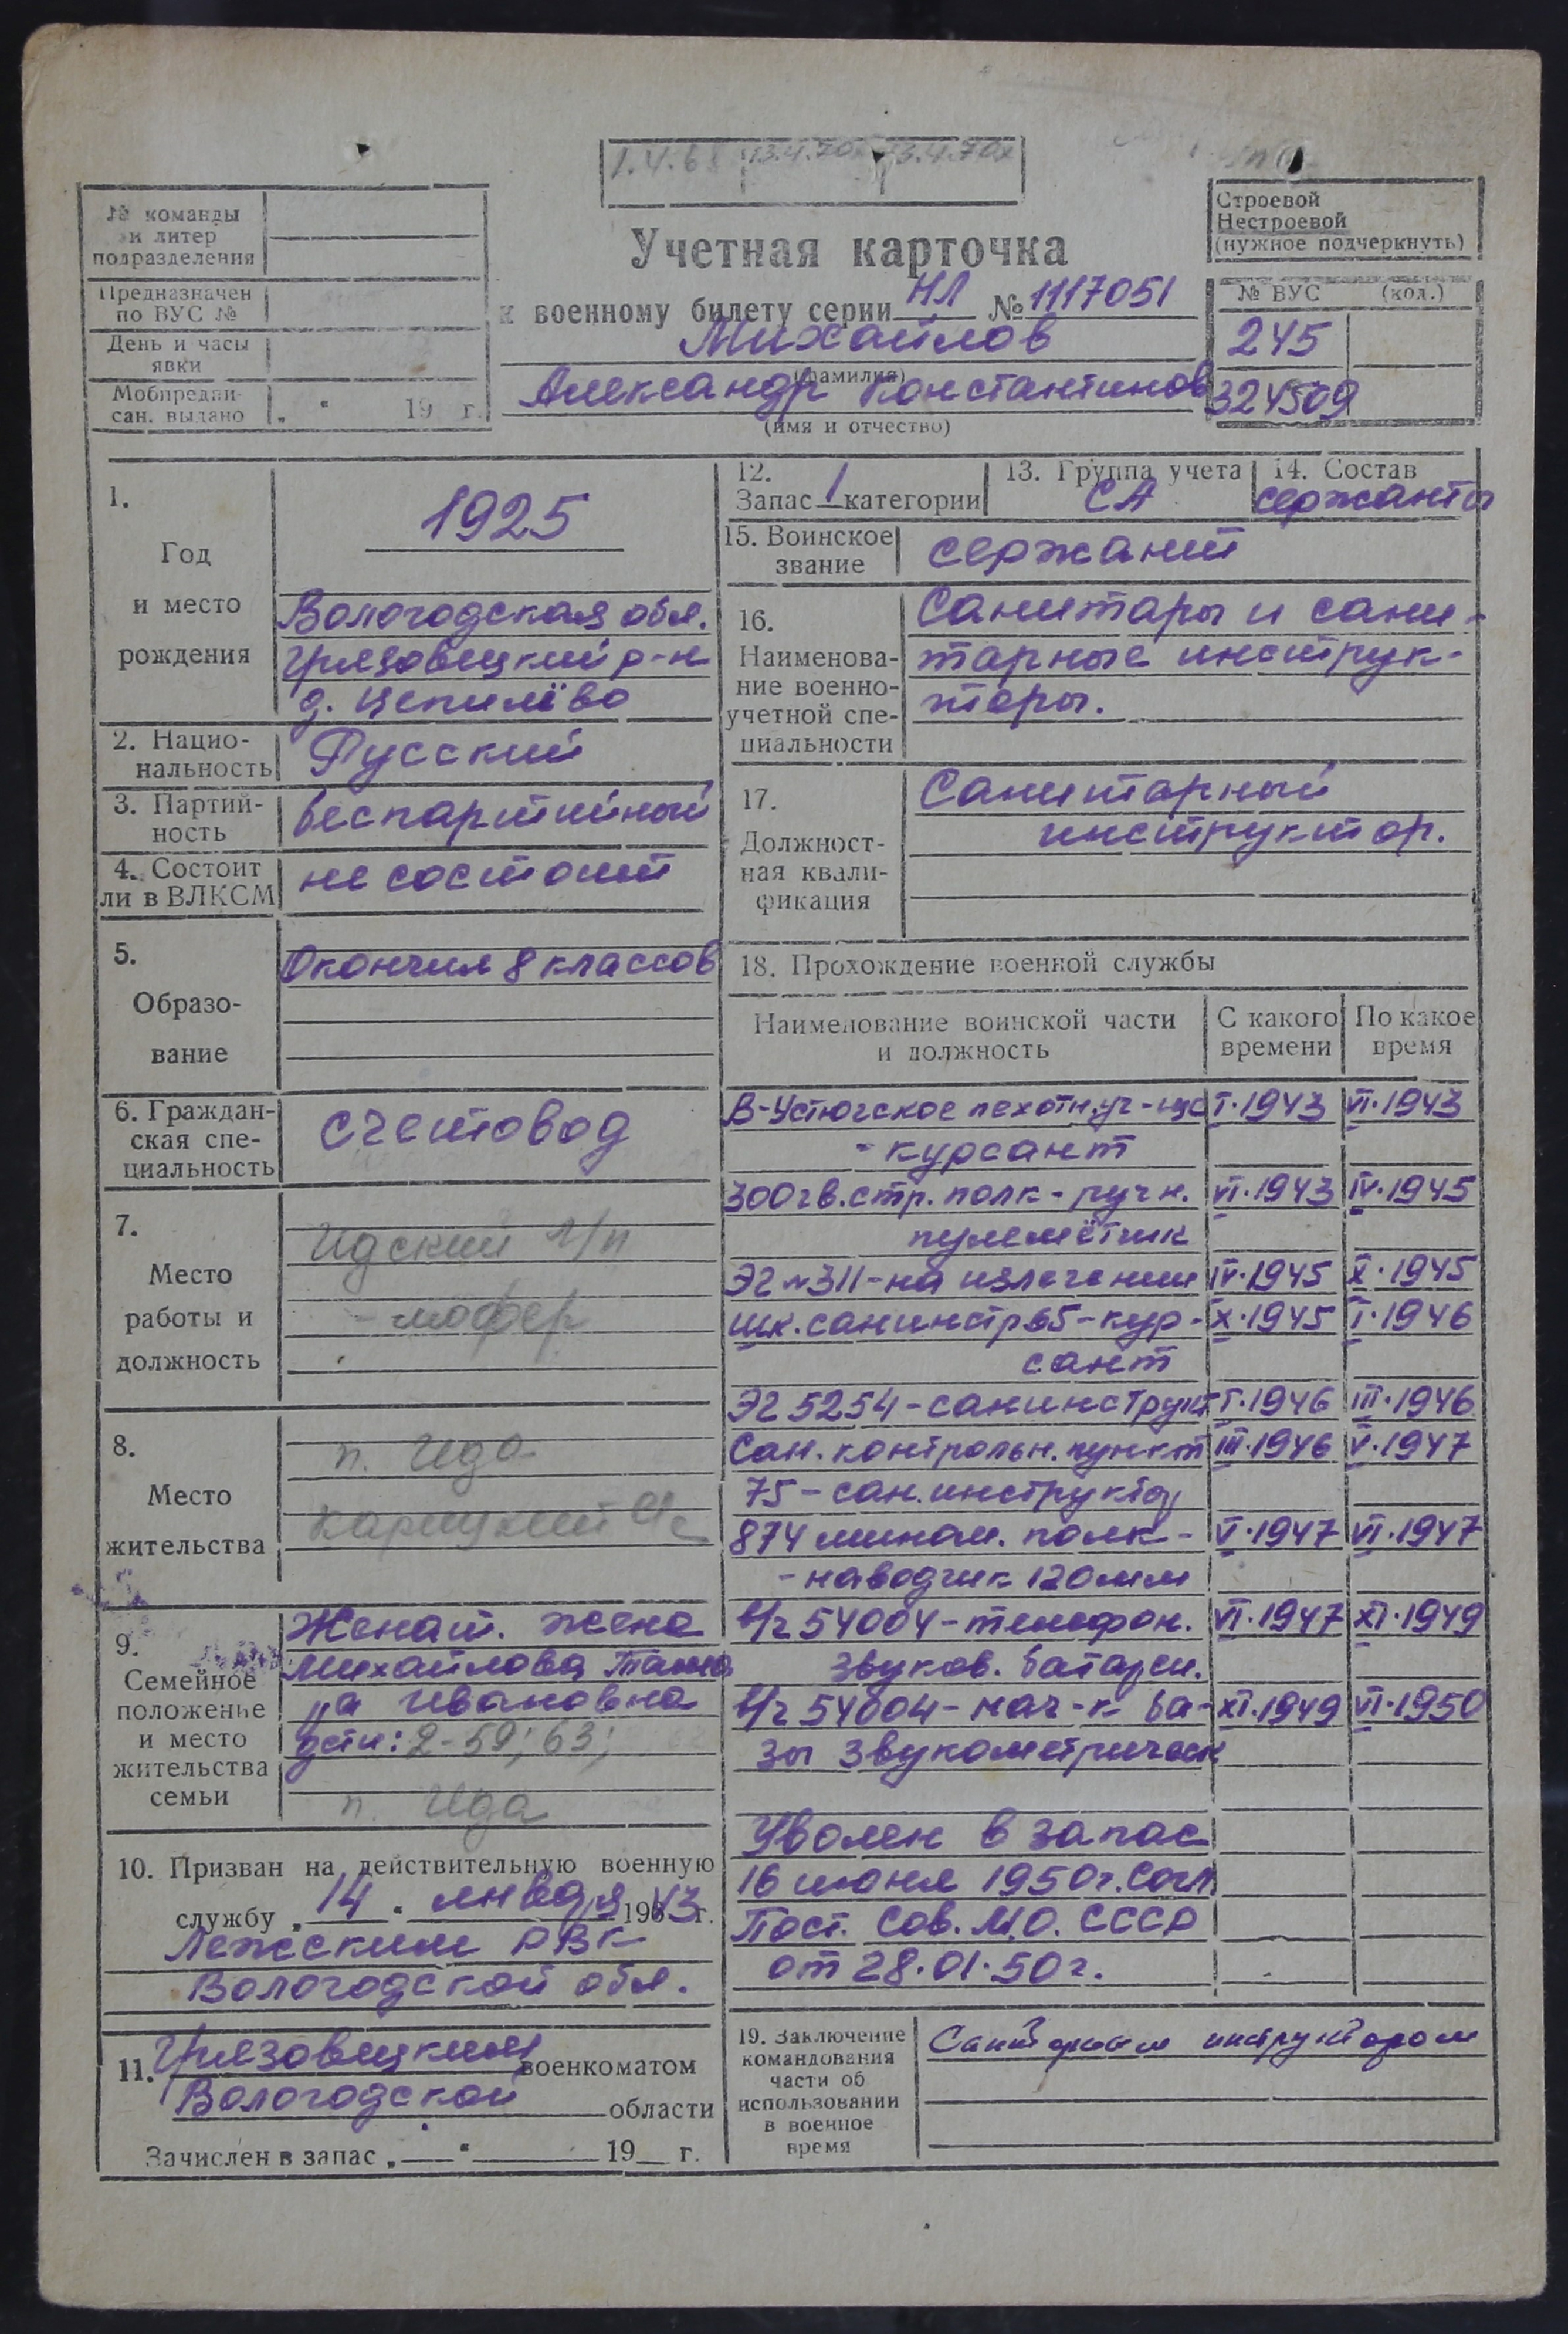 1.4.68 13.4.70х 13.4.70х
№ команды
и литер
подразделения
Предназначен
по ВУС №
День и часы
явки
Мобпредпи-
сан. выдано „ “ 19 г.
Учетная карточка
к военному билету серии НЛ № 1117051
Михайлов
(фамилия)
Александр Константинов
(имя и отчество)
Строевой
Нестроевой
(нужное подчеркнуть)
№ ВУС (код.)
245
324509
1.
Год
и место
рождения
1925
Вологодская обл.
Грязовецкий р-н
д. Цепилёво
2. Нацио-
нальность
Русский
3. Партий-
ность
беспартийный
4. Состоит
ли в ВЛКСМ
не состоит
5.
Образо-
вание
Окончил 8 классов
6. Граждан-
ская спе-
циальность
счетовод
7.
Место
работы и
должность
Идский л/п
- шофер
8.
Место
жительства
п. Ида
9.
Семейное
положение
и место
жительства
семьи
Женат. жена
Михайлова Тама
ра Ивановна
дети: 2-59; 63;
п. Ида
10. Призван на действительную военную
службу „14“ января 1943 г.
Лежским РВК
Вологодской обл.
11. Грязовецким военкоматом
Вологодской области
Зачислен в запас „ “ 19 г.
12.
Запас 1 категории
13. Группа учета
СА
14. Состав
сержанты
15. Воинское
звание
сержант
16.
Наименова-
ние военно-
учетной спе-
циальности
Санитары и сани-
тарные инструк-
торы.
17.
Должност-
ная квали-
фикация
Санитарный
инструктор.
18. Прохождение военной службы
Наименование воинской части
и должность
С какого
времени
По какое
время
В-Устюгское пехотн. уч-ще I.1943 VI.1943
- курсант
300 гв. стр. полк - ручн. VI.1943 IV.1945
пулемётчик
ЭГ №311 - на излечении IV.1945 X.1945
шк. санинстр 65 - кур- X.1945 I.1946
сант
ЭГ 5254 - санинструкт I.1946 III.1946
Сан. контрольн. пункт III.1946 V.1947
75 - сан. инструктор
874 мином. полк - V.1947 VI.1947
- наводчик 120мм
в/ч 54004 - телефон. VI.1947 XI.1949
звуков. батареи.
в/ч 54004 - нач-к ба- XI.1949 VI.1950
зы звукометрическ
Уволен в запас
16 июня 1950г. согл
Пост. Сов. М.О. СССР
от 28.01.50г.
19. Заключение
командования
части об
использовании
в военное
время
Санитарным инструктором